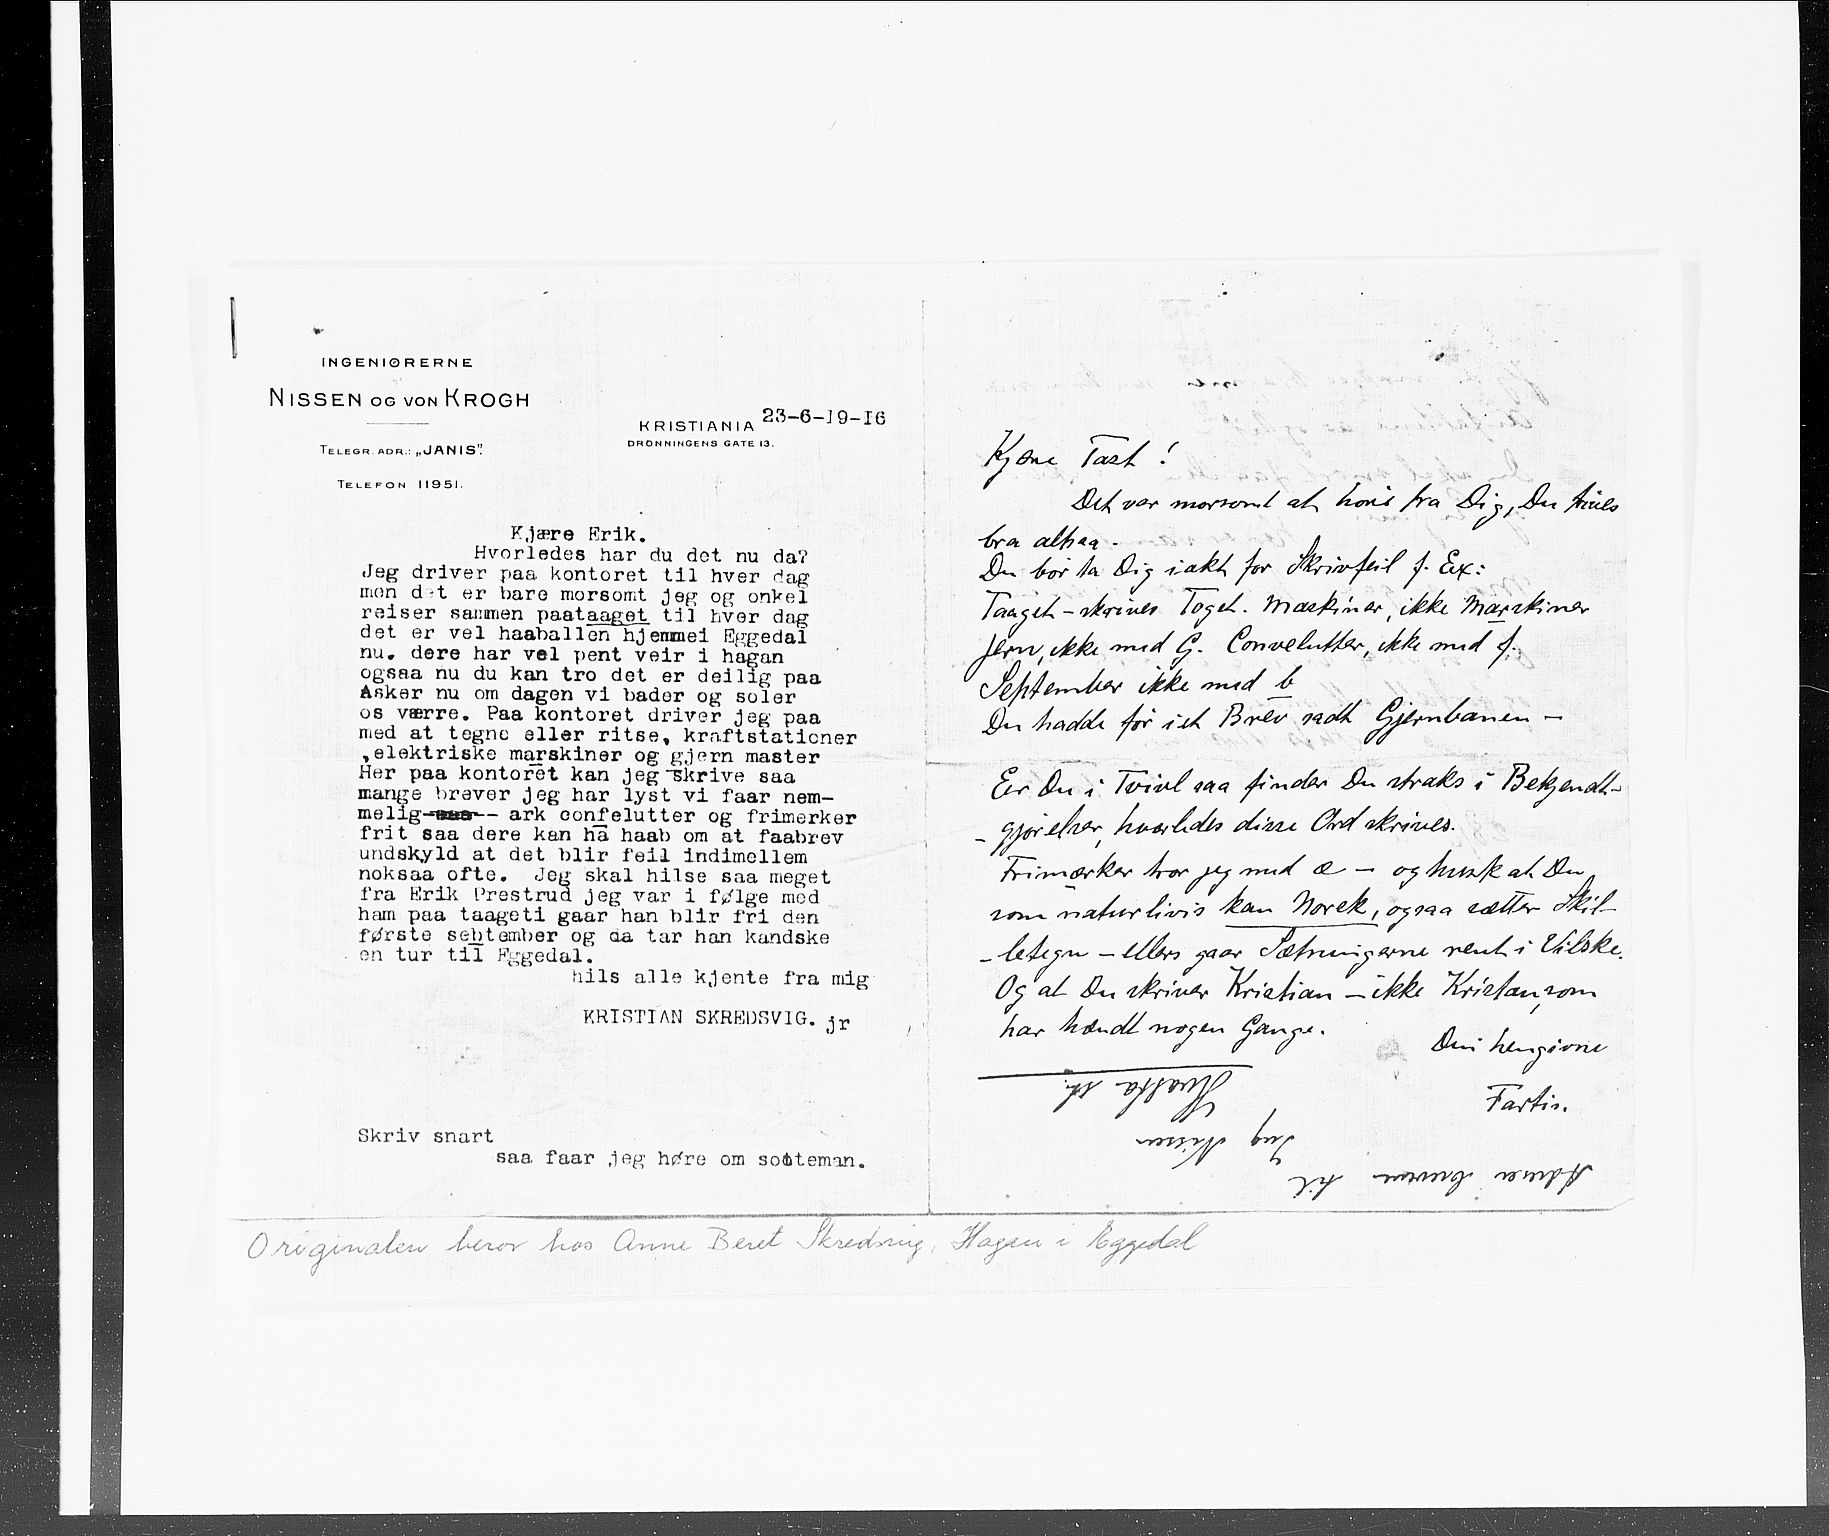 INGENIØRERNE
NISSEN OG VON KROGH
TELEGR. ADR.: „JANIS".
TELEFON 11951.
KRISTIANIA 23-6-19-16
DRONNINGENS GATE 13.
Kjære Erik.
Hvorledes har du det nu da?
Jeg driver paa kontoret til hver dag
men det er bare morsomt jeg og onkel
reiser sammen paataaget til hver dag
det er vel haaballen hjemmei Eggedal
nu. dere har vel pent veir i hagan
ogsaa nu du kan tro det er deilig paa
Asker nu om dagen vi bader og soler
os værre. Paa kontoret driver jeg paa
med at tegne eller ritse, kraftstationer
,elektriske marskiner og gjern master
Her paa kontoret kan jeg skrive saa
mange brever jeg har lyst vi faar nem-
melig ark confelutter og frimerker
frit saa dere kan ha haab om at faabrev
undskyld at det blir feil indimellem
noksaa ofte. Jeg skal hilse saa meget
fra Erik Prestrud jeg var i følge med
ham paa taageti gaar han blir fri den
første sebtember og da tar han kandske
en tur til Eggedal.
hils alle kjente fra mig
KRISTIAN SKREDSVIG. jr
Skriv snart
saa faar jeg høre om sootteman.
Kjære Tast!
Det var morsomt at høre fra Dig, Du trives
bra altsaa.
Du bør ta Dig iakt for Skrivfeil f. Ex:
Taaget – skrives Toget. Maskiner, ikke Marskiner
Jern, ikke med G. Convelutter, ikke med f.
September ikke med b
Du hadde før i et Brev sadt Gjernbanen –
Er Du i Tvivl saa finder Du straks i Bekjendt-
- gjørelser, hvorledes disse Ord skrives.
Frimærker tror jeg med æ – og husk at Du
som naturligvis kan Norsk, ogsaa sætter Skil-
- letegn – ellers gaar Sætningerne rent i Vilske.
Og at Du skriver Kristian – ikke Kristan, som
har hændt nogen Gange.
Din hengivne
Fartis.
Adresser brevene til
Ing Nissen
Hvalstad st.
Originalen beror hos Anne Beret Skredsvig, Hagan i Eggedal